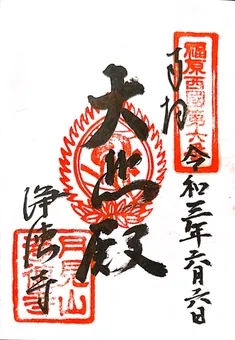 奉拝
福原西國第六番
令和三年六月六日
大悲殿
浄徳寺
月見山